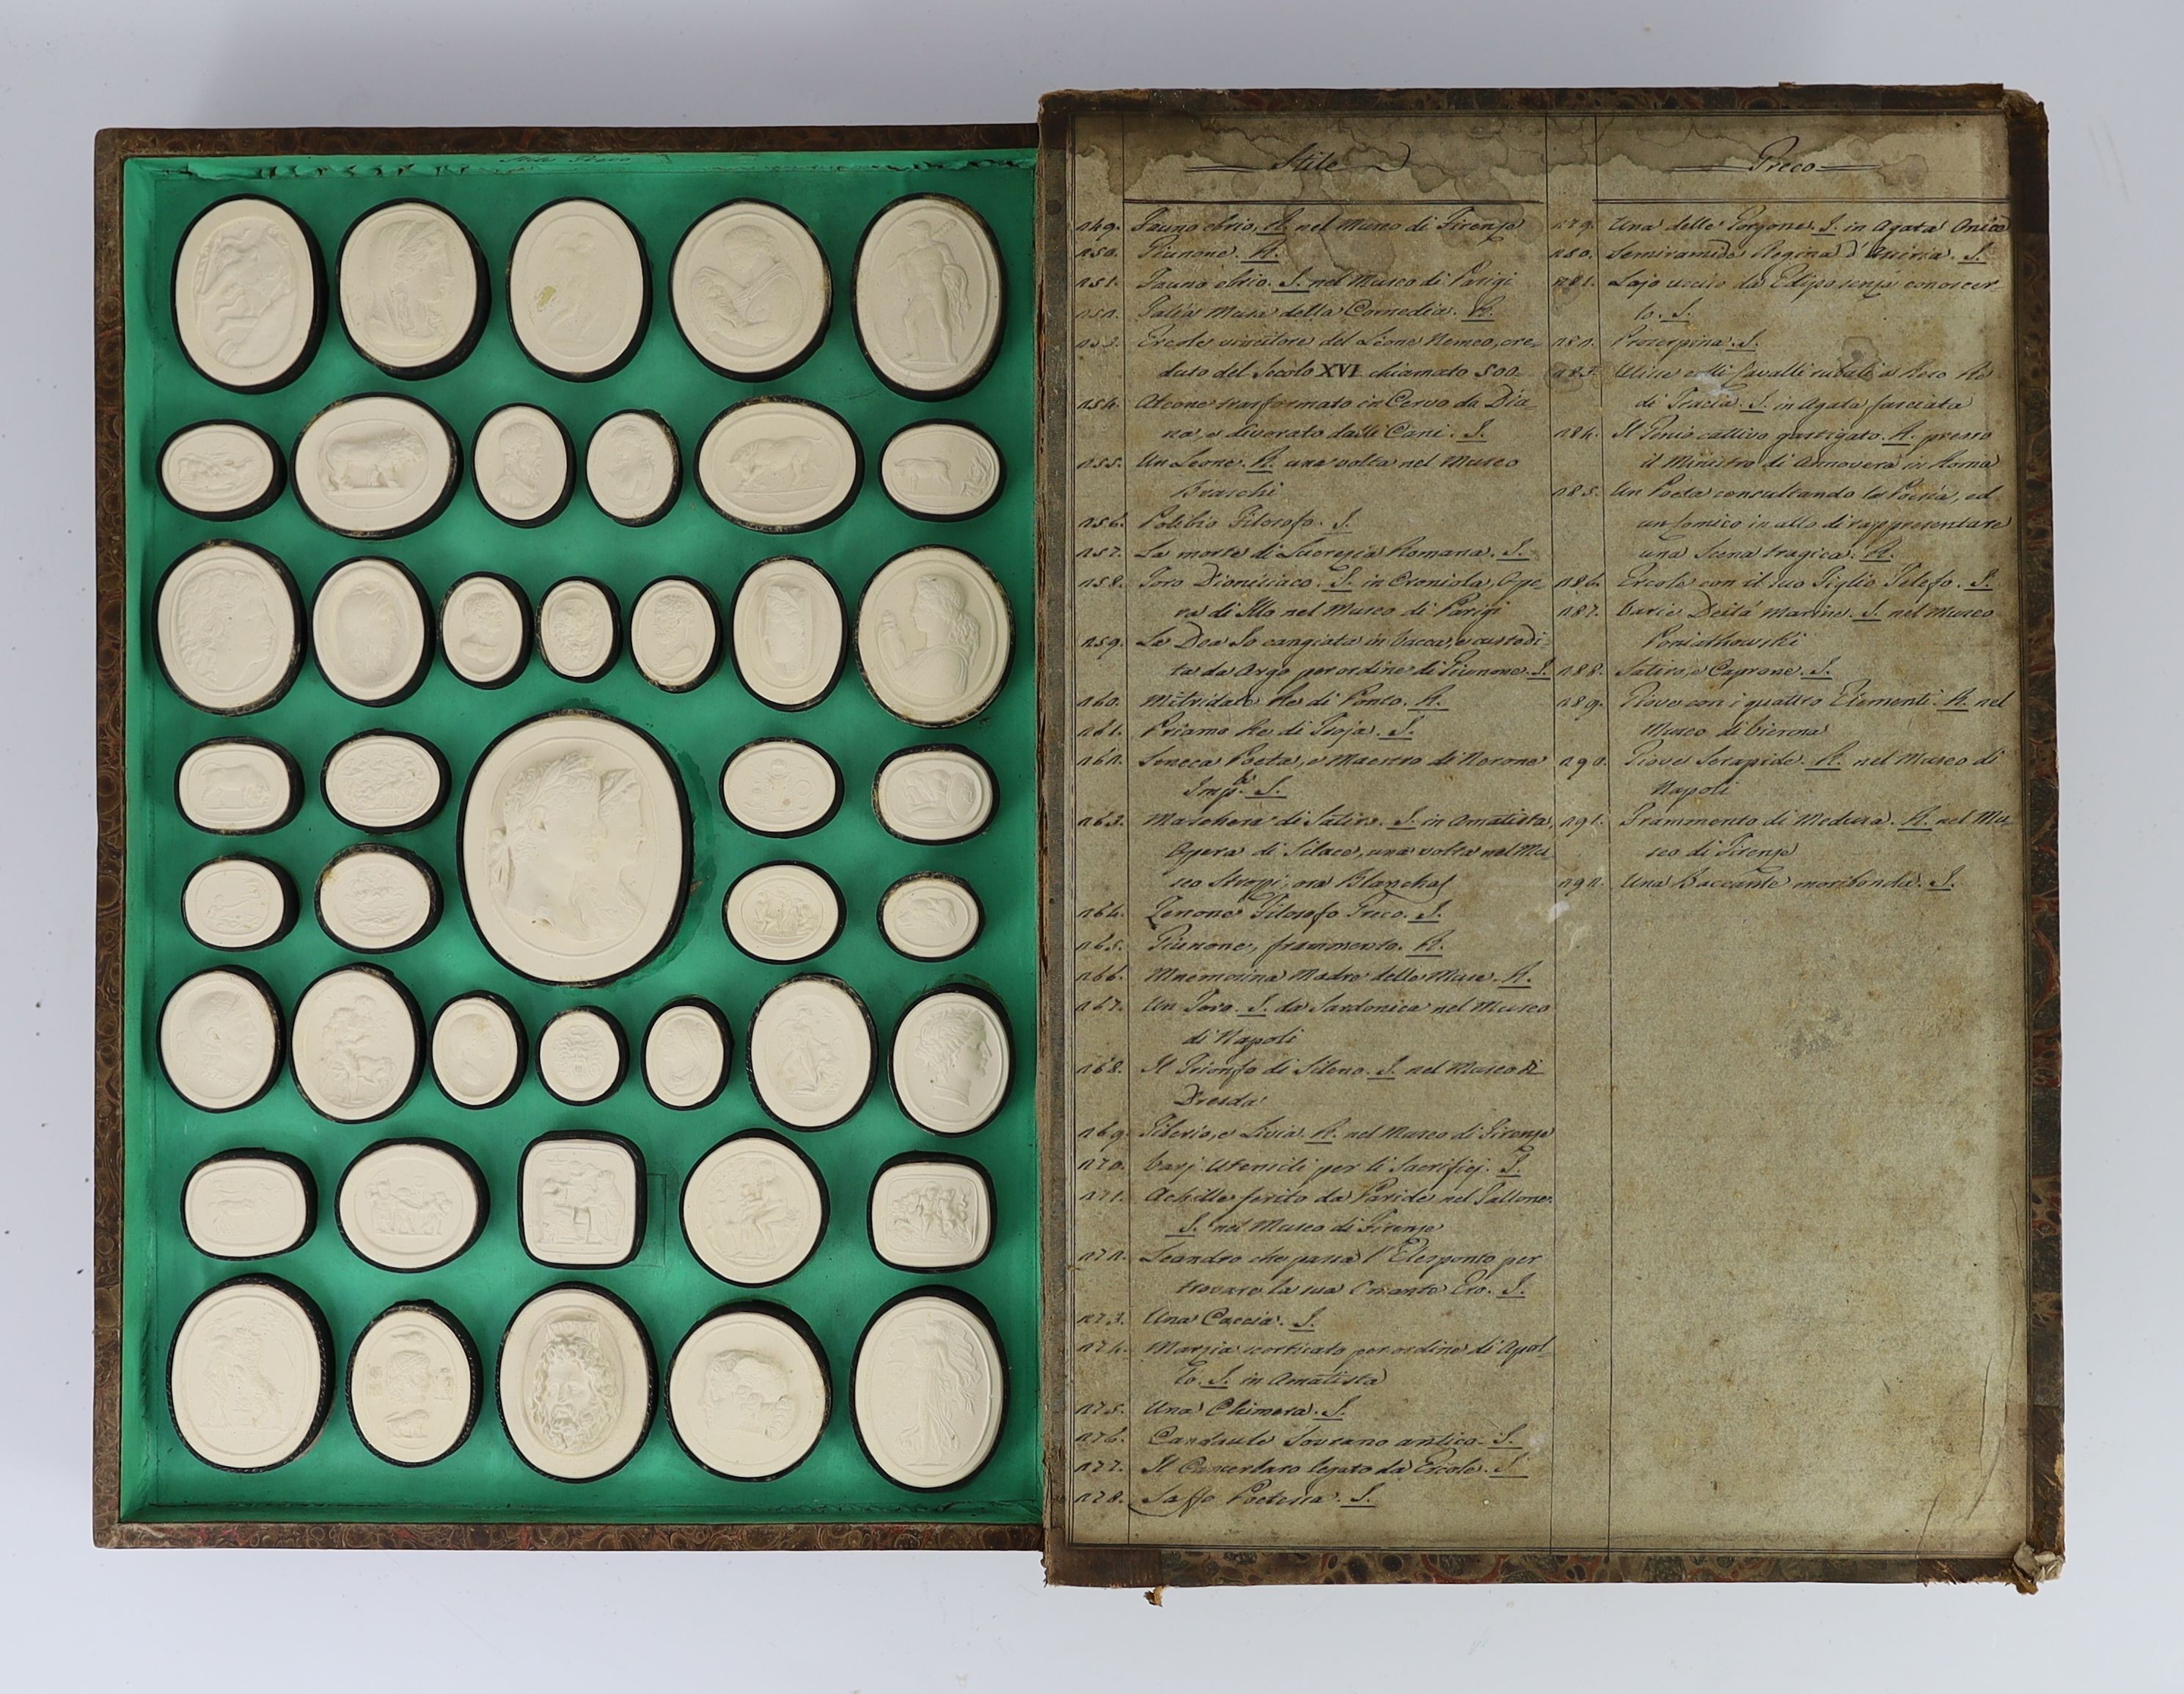 Stile Greco
Stile
Greco
249. Fauno ebrio. R. nel Museo di Firenze
250. Giunone. R.
251. Fauno ebrio. S. nel Museo di Parigi
252. Talia Musa della Comedia. R.
253. Ercole vincitore del Leone Nemeo, cre-
duto del Secolo XVI chiamato 500
254. Ateone trasformato in Cervo da Dia-
na, e divorato dalli Cani. S.
255. Un Leone. R. una volta nel Museo
Braschi
256. Polibio Filosofo. S.
257. La morte di Lucrezia Romana. S.
258. Toro Dionisiaco. S. in Corniola, Ope-
ra di Illo nel Museo di Parigi
259. La Dea Io cangiata in Vacca, e custodi-
ta da Argo per ordine di Giunone. S.
260. Mitridate Re di Ponto. R.
261. Priamo Re di Troja. S.
262. Seneca Poeta, e Maestro di Nerone
Imp.e S.
263. Maschera di Satiro. S. in Amatista,
Opera di Silace, una volta nel Mu-
seo Strozzi, ora Blanchas
264. Zenone Filosofo Greco. S.
265. Giunone, frammento. R.
266. Mnemosina Madre delle Muse. R.
267. Un Toro. S. da Sardonica nel Museo
di Napoli
268. Il Trionfo di Sileno. S. nel Museo di
Dresda
269. Tiberio, e Livia. R. nel Museo di Firenze
270. Varj Utensili per li Sacrifizj. S.
271. Achille ferito da Paride nel Tallone.
S. nel Museo di Firenze
272. Leandro che passa l'Elesponto per
trovare la sua Amante Ero. S.
273. Una Caccia. S.
274. Marzia scorticato per ordine di Apol-
lo. S. in Amatista
275. Una Chimera. S.
276. Candaule Sovrano antico. S.
277. Il Cancerbaro legato da Ercole. S.
278. Saffo Poetessa. S.
279. Una delle Gorgone. S. in Agata Onice
280. Semiramide Regina d'Assiria. S.
281. Lajo ucciso da Edipo senza conoscer-
lo. S.
282. Proserpina. S.
283. Ulisse colli Cavalli rubati a Reso Re
di Tracia. S. in Agata fasciata
284. Il Genio cattivo gastigato. R. presso
il Ministro di Annovera in Roma
285. Un Poeta consultando la Poesia, ed
un Comico in atto di rappresentare
una Scena tragica. R.
286. Ercole con il suo Figlio Telefo. S.
287. Varie Deità Marine. S. nel Museo
Poniathowski
288. Satiro, e Caprone. S.
289. Giove con i quattro Elementi. R. nel
Museo di Vienna
290. Giove Serapide. R. nel Museo di
Napoli
291. Frammento di Medusa. R. nel Mu-
seo di Firenze
292. Una Baccante moribonda. S.